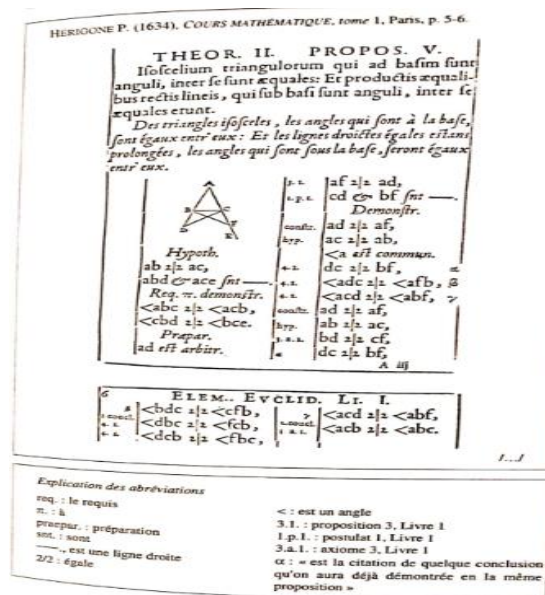 HERIGONE P. (1634), COURS MATHÉMATIQUE, tome 1, Paris, p. 5-6.
THEOR. II. PROPOS. V.
Isoscelium triangulorum qui ad basim sunt
anguli, inter se sunt æquales: Et productis æquali-
bus rectis lineis, qui sub basi sunt anguli, inter se
æquales erunt.
Des triangles isosceles, les angles qui sont à la base,
sont égaux entr'eux: Et les lignes droictes égales estans
prolongées, les angles qui sont sous la base, seront égaux
entr'eux.
A
B C
D
E
Hypoth.
ab 2|2 ac,
abd & ace snt —.
Req. π. demonstr.
<abc 2|2 <acb,
<cbd 2|2 <bce.
Præpar.
ad est arbitr.
3. 1. af 2|2 ad,
1.p.1. cd & bf snt —.
Demonstr.
constr. ad 2|2 af,
hyp. ac 2|2 ab,
<a est commun.
4. 1. dc 2|2 bf, α
4. 1. <adc 2|2 <afb, β
4. 1. <acd 2|2 <abf, γ
constr. ad 2|2 af,
hyp. ab 2|2 ac,
3. a. 1. bd 2|2 cf,
α dc 2|2 bf,
A iij
6 ELEM. EVCLID. LI. I.
β <bdc 2|2 <cfb,
1.concl. 4. 1. <dbc 2|2 <fcb,
4. 1. <dcb 2|2 <fbc,
γ <acd 2|2 <abf,
<acb 2|2 <abc.
[...]
Explication des abréviations
req. : le requis
π. : à
praepar. : préparation
snt. : sont
——., est une ligne droite
2/2 : égale
< : est un angle
3.1. : proposition 3, Livre 1
1.p.1. : postulat 1, Livre 1
3.a.1. : axiome 3, Livre 1
α : « est la citation de quelque conclusion
qu'on aura déjà démontrée en la même
proposition »